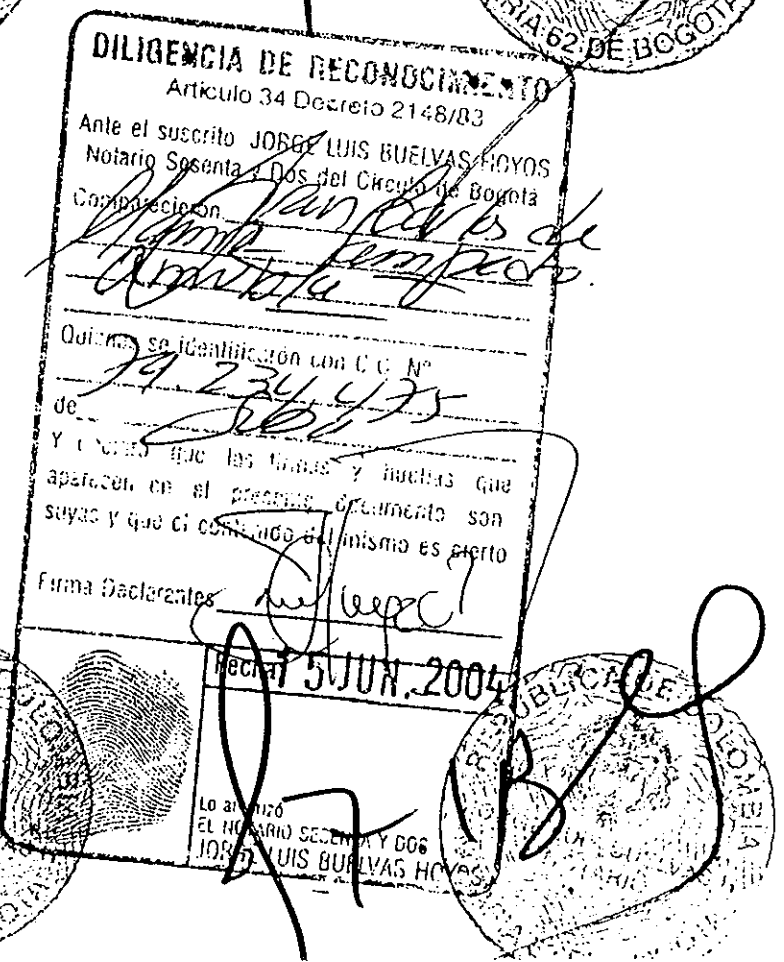 RIA 62 DE BOGOTA
DILIGENCIA DE RECONOCIMIENTO
Articulo 34 Decreto 2148/83
Ante el suscrito JORGE LUIS BUELVAS HOYOS
Notario Sesenta y Dos del Circulo de Bogotá
Comparecieron Juan Carlos de
Quienes se identificaron con C.C. Nº
79.234.475
de
Y que las firmas y huellas que
aparecen en el presente documento son
suyas y que el contenido del mismo es cierto
Firma Declarantes
Fecha 15 JUN. 2004
REPUBLICA DE COLOMBIA
Lo autorizó
EL NOTARIO SESENTA Y DOS
JORGE LUIS BUELVAS HOYOS